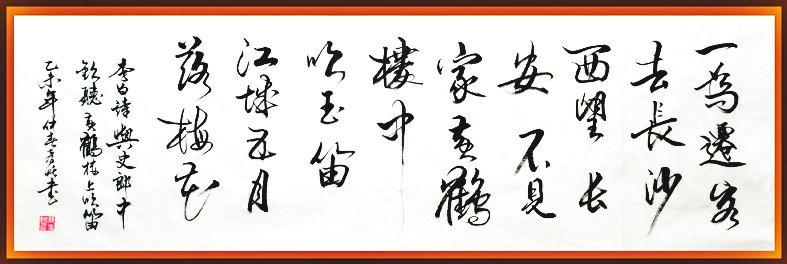 一為遷客
去長沙
西望长
安不見
家黄鶴
樓中
吹玉笛
江城五月
落梅花
李白詩與史郎中
欽聽黄鶴楼上吹笛
乙未年仲春书